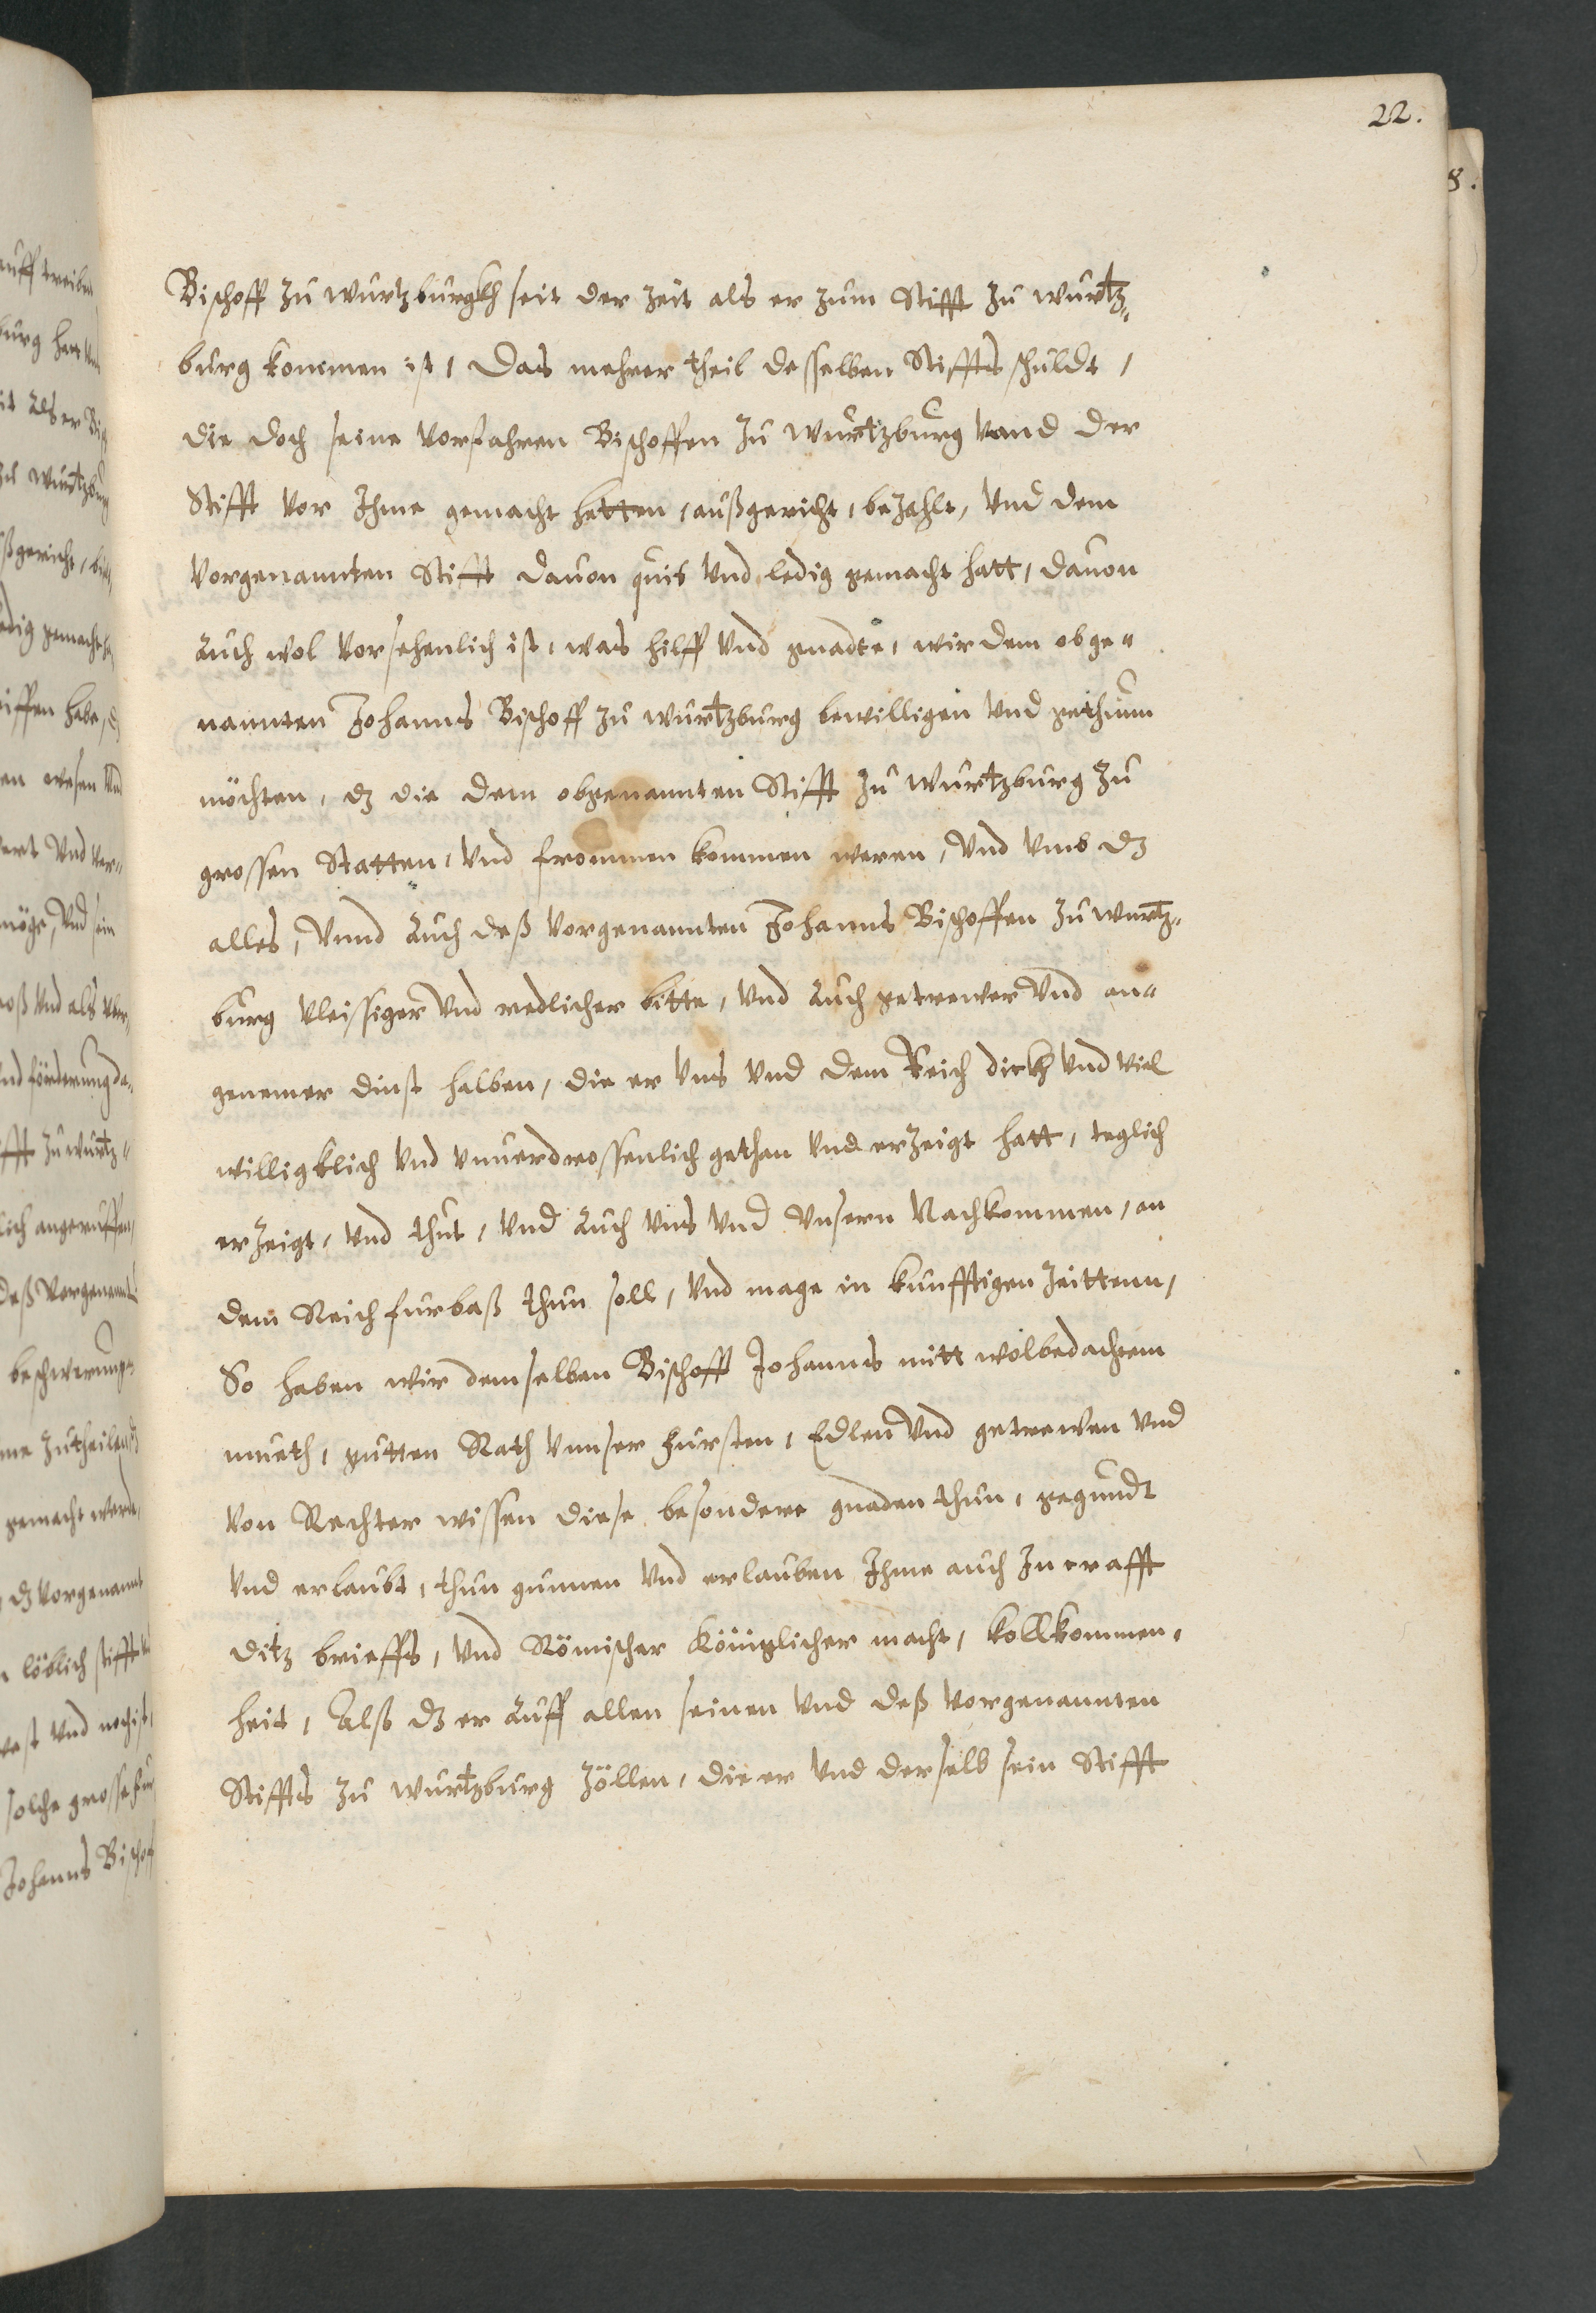 22.
8.
Bischoff zu wurtzburgkh seit der zeit als er zum Stifft zu wurtz„
burg kommen ist, Das mehrer theil desselben Stiffts schuldt,
die doch seine Vorfahren Bischoffen zu wurtzburg Vand der
Stifft Vor Ihme gemacht hetten, außgericht, bezahlt, Vnd dem
Vorgenannten Stifft dauon quis Vnd ledig gemacht hatt, dauon
Auch wol Vorsehenlich ist, was hilff Vnd gnadte, wir dem obge„
nannten Johanns Bischoff zu wurtzburg bewilligen Vnd gethunn
möchten, dz die dem obgenannten Stifft zu wurtzburg zu
grossen Statten, Vnd frommen kommen weren, Vnd Vmb dz
alles, Vnnd Auch deß Vorgenannten Johanns Bischoffen zu wurtz„
burg Vleissiger Vnd redlicher bitte, Vnd Auch getrewer Vnd an„
genemer dinst halben, die er Vns Vnd dem Reich dickh Vnd Viel
willigklich Vnd Vnuerdrossenlich gethan Vnd erzeigt hatt, teglich
erzeigt, Vnd thut, Vnd Auch Vns Vnd Vnsern Nachkommen, an
dem Reich furbaß thun soll, Vnd mage in kunfftigen zeittenn,
So haben wir demselben Bischoff Johanns mitt wolbedachtem
mueth, gutten Rath Vnnser Fursten, Edlen Vnd getrewen Vnd
Von Rechter wissen diese besondere gnaden thun, gegundt
Vnd erlaubt, thun gunnen Vnd erlauben Ihme auch In crafft
ditz brieffs, Vnd Römischer Königlicher macht, Kollkommen„
heit, Alß dz er Auff allen seinen Vnd deß Vorgenannten
Stiffts zu wurtzburg zöllen, die er Vnd derselb sein Stifft